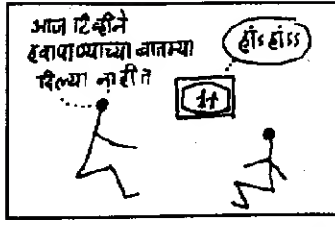 आज टिव्हीने
हवापाण्याच्या बातम्या
दिल्या नाहीत
हांऽहांऽऽ